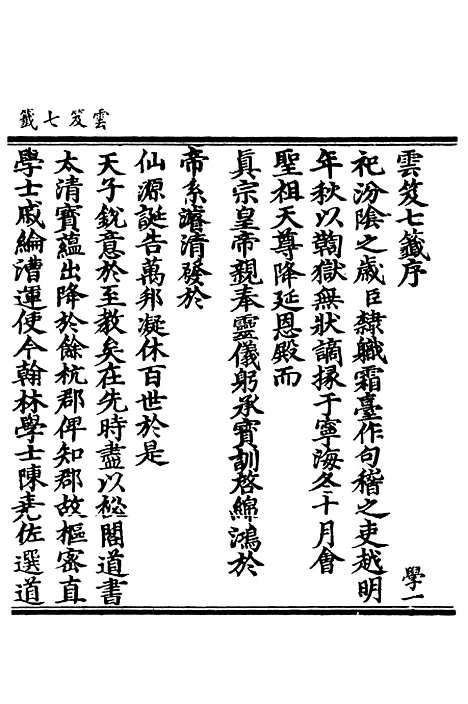 雲笈七籤
雲笈七籤序
學一
祀汾陰之歲臣隸職霜臺作句稽之吏越明
年秋以鞫獄無狀謫掾于寧海冬十月會
聖祖天尊降延恩殿而
眞宗皇帝親奉靈儀躬承寶訓啓綿鴻於
帝系濬清發於
仙源誕告萬邦凝休百世於是
天子銳意於至教矣在先時盡以秘閣道書
太清寶蘊出降於餘杭郡俾知郡故樞密直
學士戚綸漕運使今翰林學士陳堯佐選道